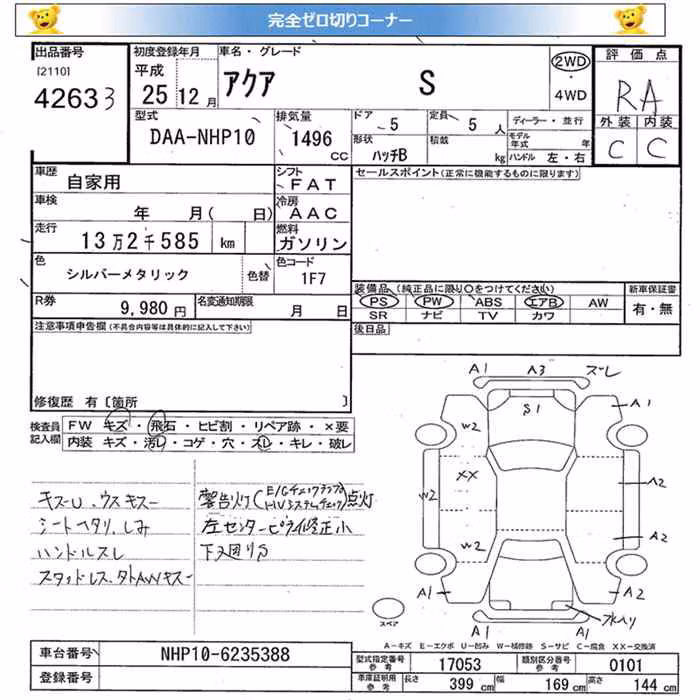 完全ゼロ切りコーナー
出品番号
[2110]
42633
初度登録年月
平成
25 12月
車名・グレード
アクア S
2WD
・
4WD
評価点
RA
外装 内装
C C
型式
DAA-NHP10
排気量
1496
CC
ドア
5
定員
5人
形状
ハッチB
積載
kg
ディーラー・並行
モデル年式 年
ハンドル 左・右
車歴
自家用
シフト
FAT
セールスポイント(正常に機能するものに限ります)
車検
年 月( 日)
冷房
AAC
走行
13万2千585 km
燃料
ガソリン
色
シルバーメタリック
色替
色コード
1F7
装備品 (純正品に限り○をつけてください)
PS PW ABS エアB AW
SR ナビ TV カワ
新車保証書
有・無
R券
9,980円
名変通知期限
月 日
後日品
注意事項申告欄(不具合内容等は具体的に記入して下さい)
修復歴 有〔箇所 〕
検査員記入欄
FW キズ・飛石・ヒビ割・リペア跡・×要
内装 キズ・汚レ・コゲ・穴・スレ・キレ・破レ
キズU.ウスキズー
シートヘタリ.しみ
ハンドルスレ
スタッドレス.タトAWキズー
警告灯(E/Gチェックランプ HVシステムチェック)点灯
左センターピライ修正小
下廻りS
A1 A3 ズレ
S1
A1
W2
XX
W2
W2
A2
A2
A1
A2
水入り
A1 A1
スペア
A-キズ E-エクボ U-凹み W-補修跡 S-サビ C-腐食 XX-交換済
車台番号
NHP10-6235388
登録番号
型式指定番号
参考
17053
類別区分番号
参考
0101
車庫証明用
参考
長さ
399 cm
幅
169 cm
高さ
144 cm